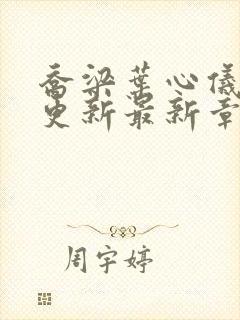 乔梁葉心儀
更新最新章
周宇婷